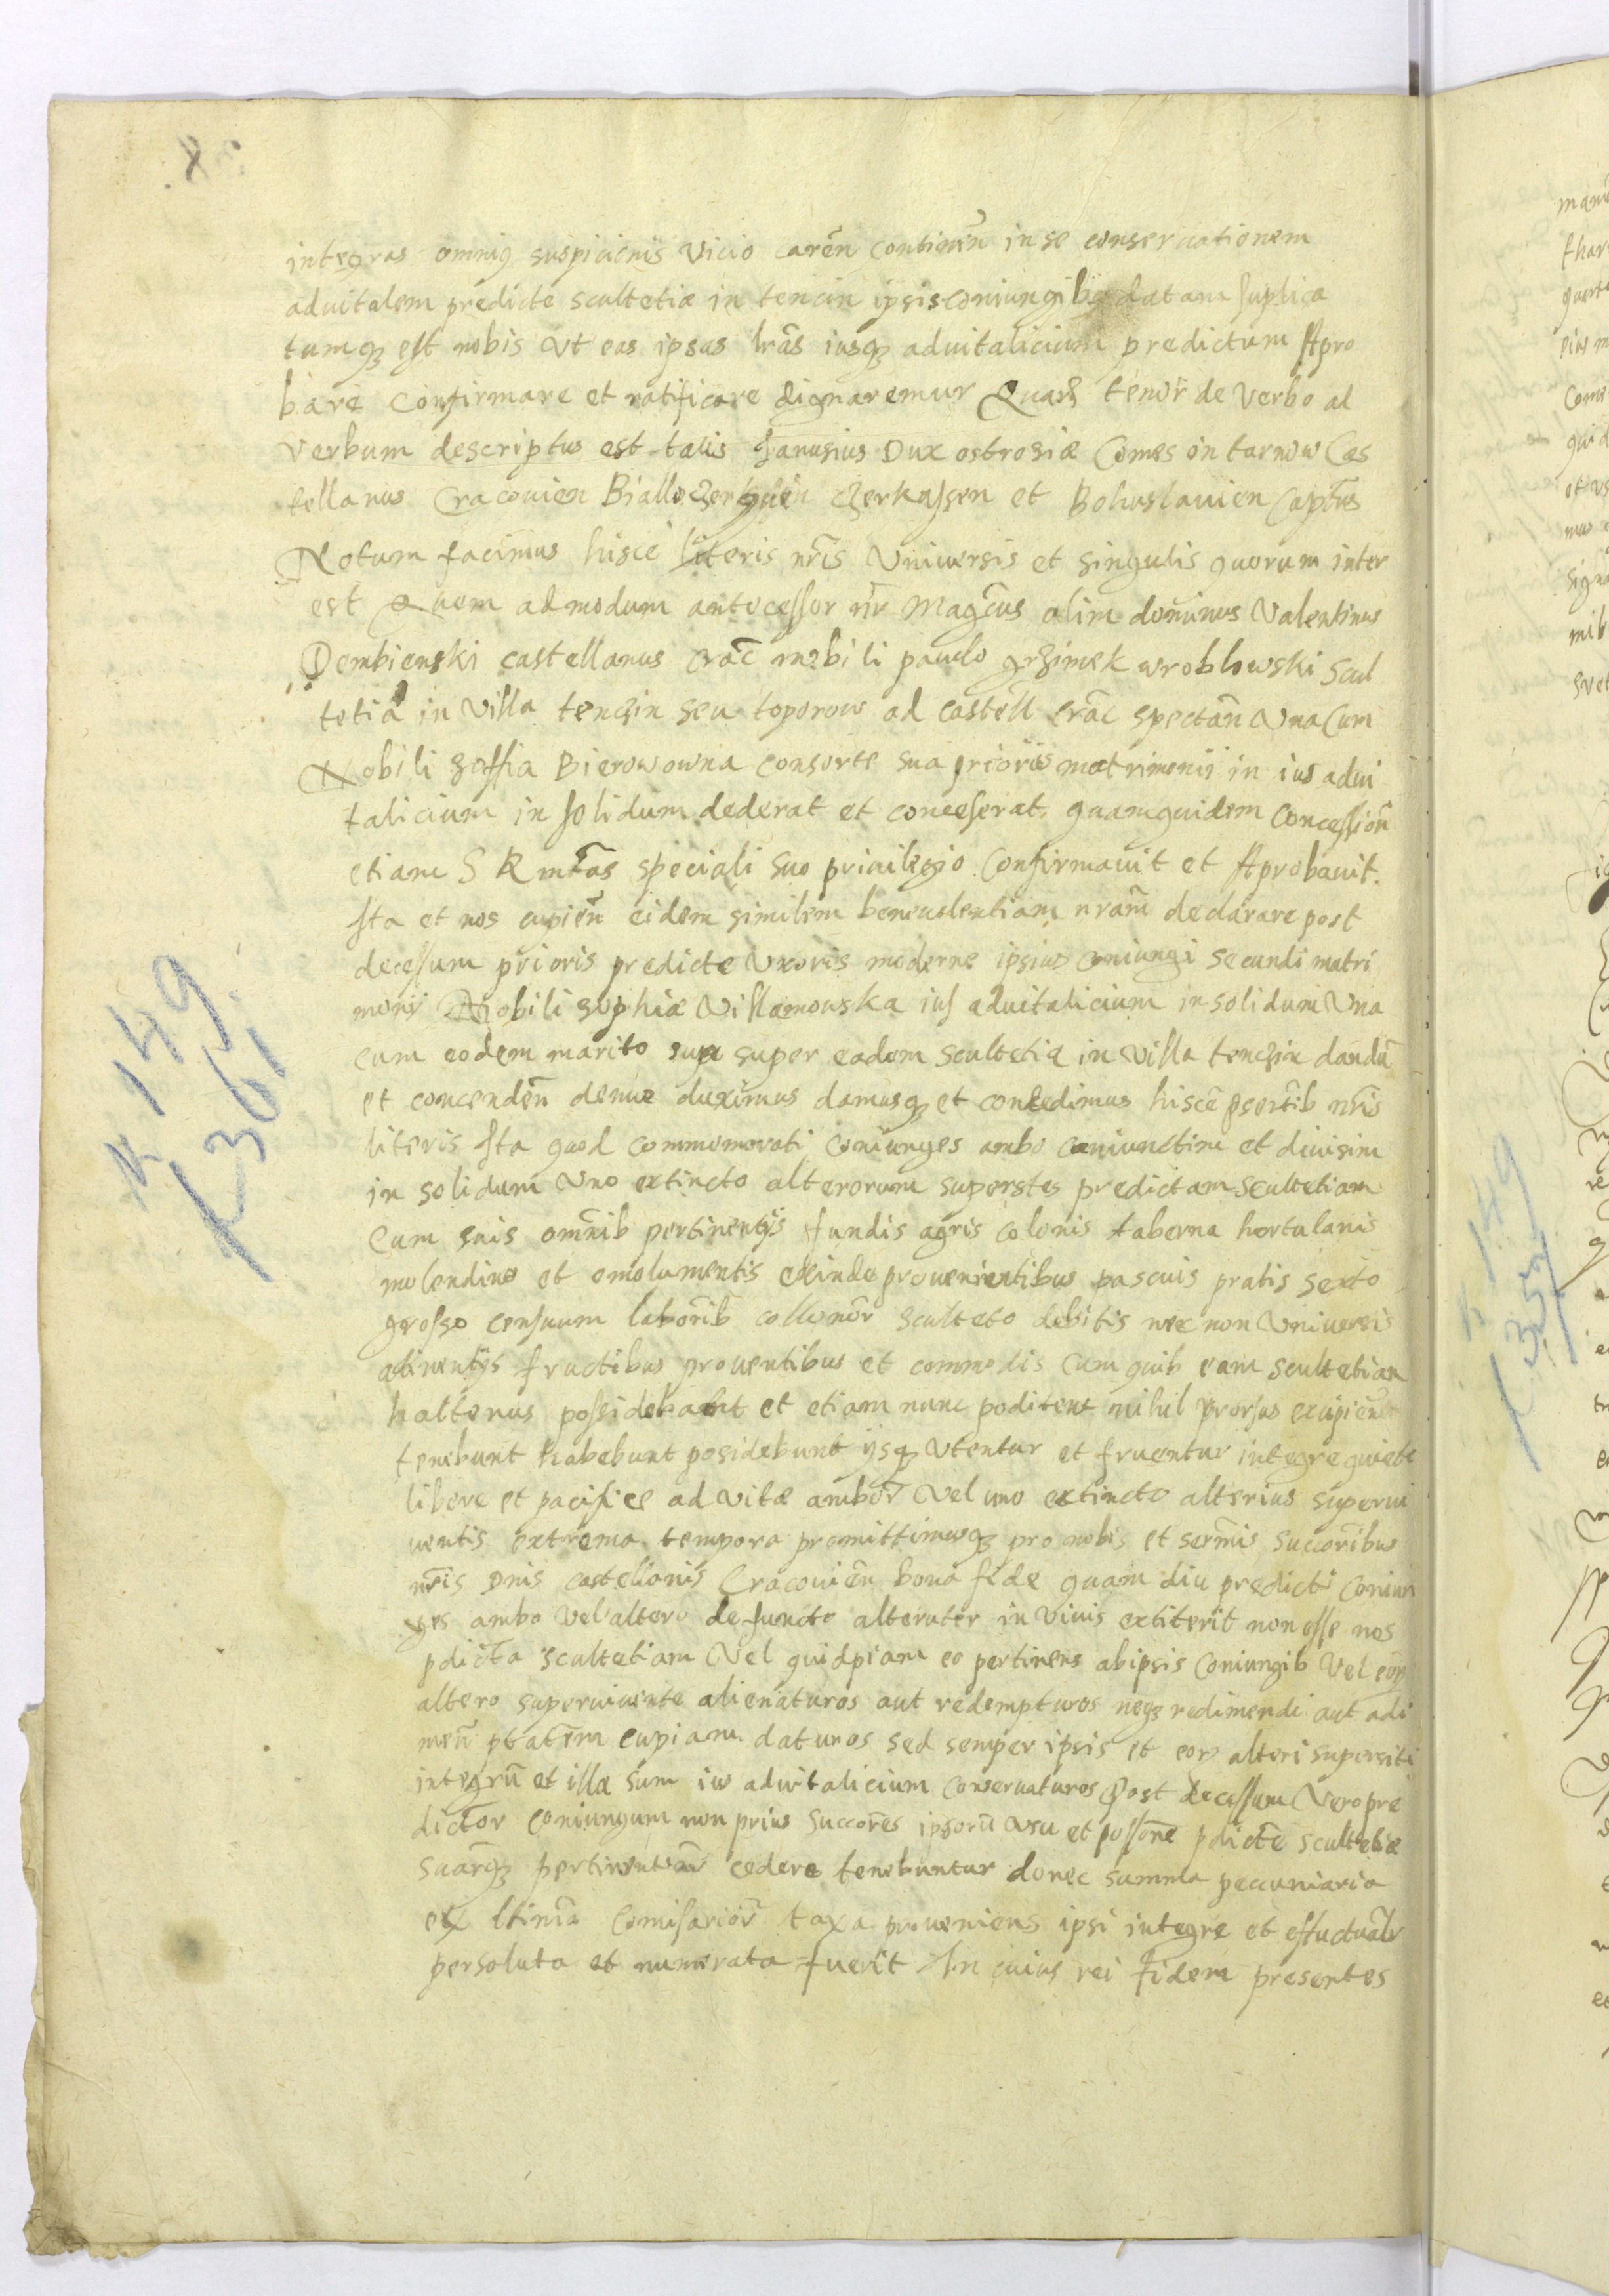 integras omniq suspicionis vicio carēn continēn in se conseruationem
aduitalem predicte scultetiæ in tencin ipsis coniungibq datam suplica
tumq est nobis vt eas ipsas lrās iusq aduitalicium predictum Apro
bare confirmare et ratificare dignaremur Quarū tenor de verbo al
verbum descriptus est talis Janusius Dux ostrosiæ Comes in tarnow Cas
tellanus Cracouien Biallo Czerkassen et Bohuslauien Captūs
Notum facimus hisce literis nrīs Vniuersis et singulis quorum inter
est Quem admodum antecessor nr̄ Magcūs olim dominus Valentinus
Dembienski castellanus crāc nobili paulo grzimek wroblowski Scul
tetia in villa tenczin seu toporow ad castell crāc spectān Vna Cum
Nobili zoffia Bierowowna consorte sua prioris matrimonii in ius adui
talicium in solidum dederat et conceserat, quamquidem Concessiōn
etiam S R mtās speciali suo priuilegio Confirmauit et Aprobauit.
Ita et nos cupiēn eidem similem beneuolentiam nrām declarare post
decessum prioris predicte Vxoris moderne ipsius coniungi secundi matri
monij Nobili sophiæ Villamouska ius aduitalicium in solidum Vna
cum eodem marito suo super eadem scultetia in villa tenczin dandū
et concendēn denuo duximus damusq et concedimus hisce psentib nrīs
literis Ita quod commemorati coniunges ambo coniunctim et diuisim
in solidum Vno extincto alterorum superstes predictam scultetiam
Cum suis omnīb pertinentijs fundis agris colonis taberna hortulanis
molendino et emolumentis exinde prouenientibus pascuis pratis sexto
grosso censuum laborīb collonōr sculteto debitis nec non Vniuersis
atinentijs fructibus prouentibus et commodis cum quib eam scultetiam
haltenus possidebant et etiam nunc nihil prorsus excipiēn
tenebunt habebunt posidebunt ijsq Vtentur et fruentur integre quiete
libere et pacifice ad vitæ ambōr Vel uno extincto alterius superui
uentis extrema tempora promittimusq pro nobis et sermīs succorībus
nrīs Dnis castellanis Cracouiēn bona fide quam diu predicti Coniun
ges ambo Vel altero defuncto alterutēr in Viuis extiterit non esse nos
pdictā scultetiam Vel quidpiam eo pertinens ab ipsis Coniungib Vel eōr
altero superuiuente alienaturos aut redempturos neqz redimendi aut adi
mēn ptatēm cupiam daturos sed semper ipsis et eor alteri supersiti
integrū et illæ sum ius aduitalicium conseruaturos Post decessum Vero pre
dictōr coniungum non prius Succorēs ipsorū Vsu et possonē pdictē scultetiæ
suarq pertinentiār cedere tenebuntur donec summa peccuniaria
ex Comisariōr taxa proueniens ipsi integre et effuctualr
persoluta et numerata fuerit In cuius rei fidem presentes
N 149
K 361